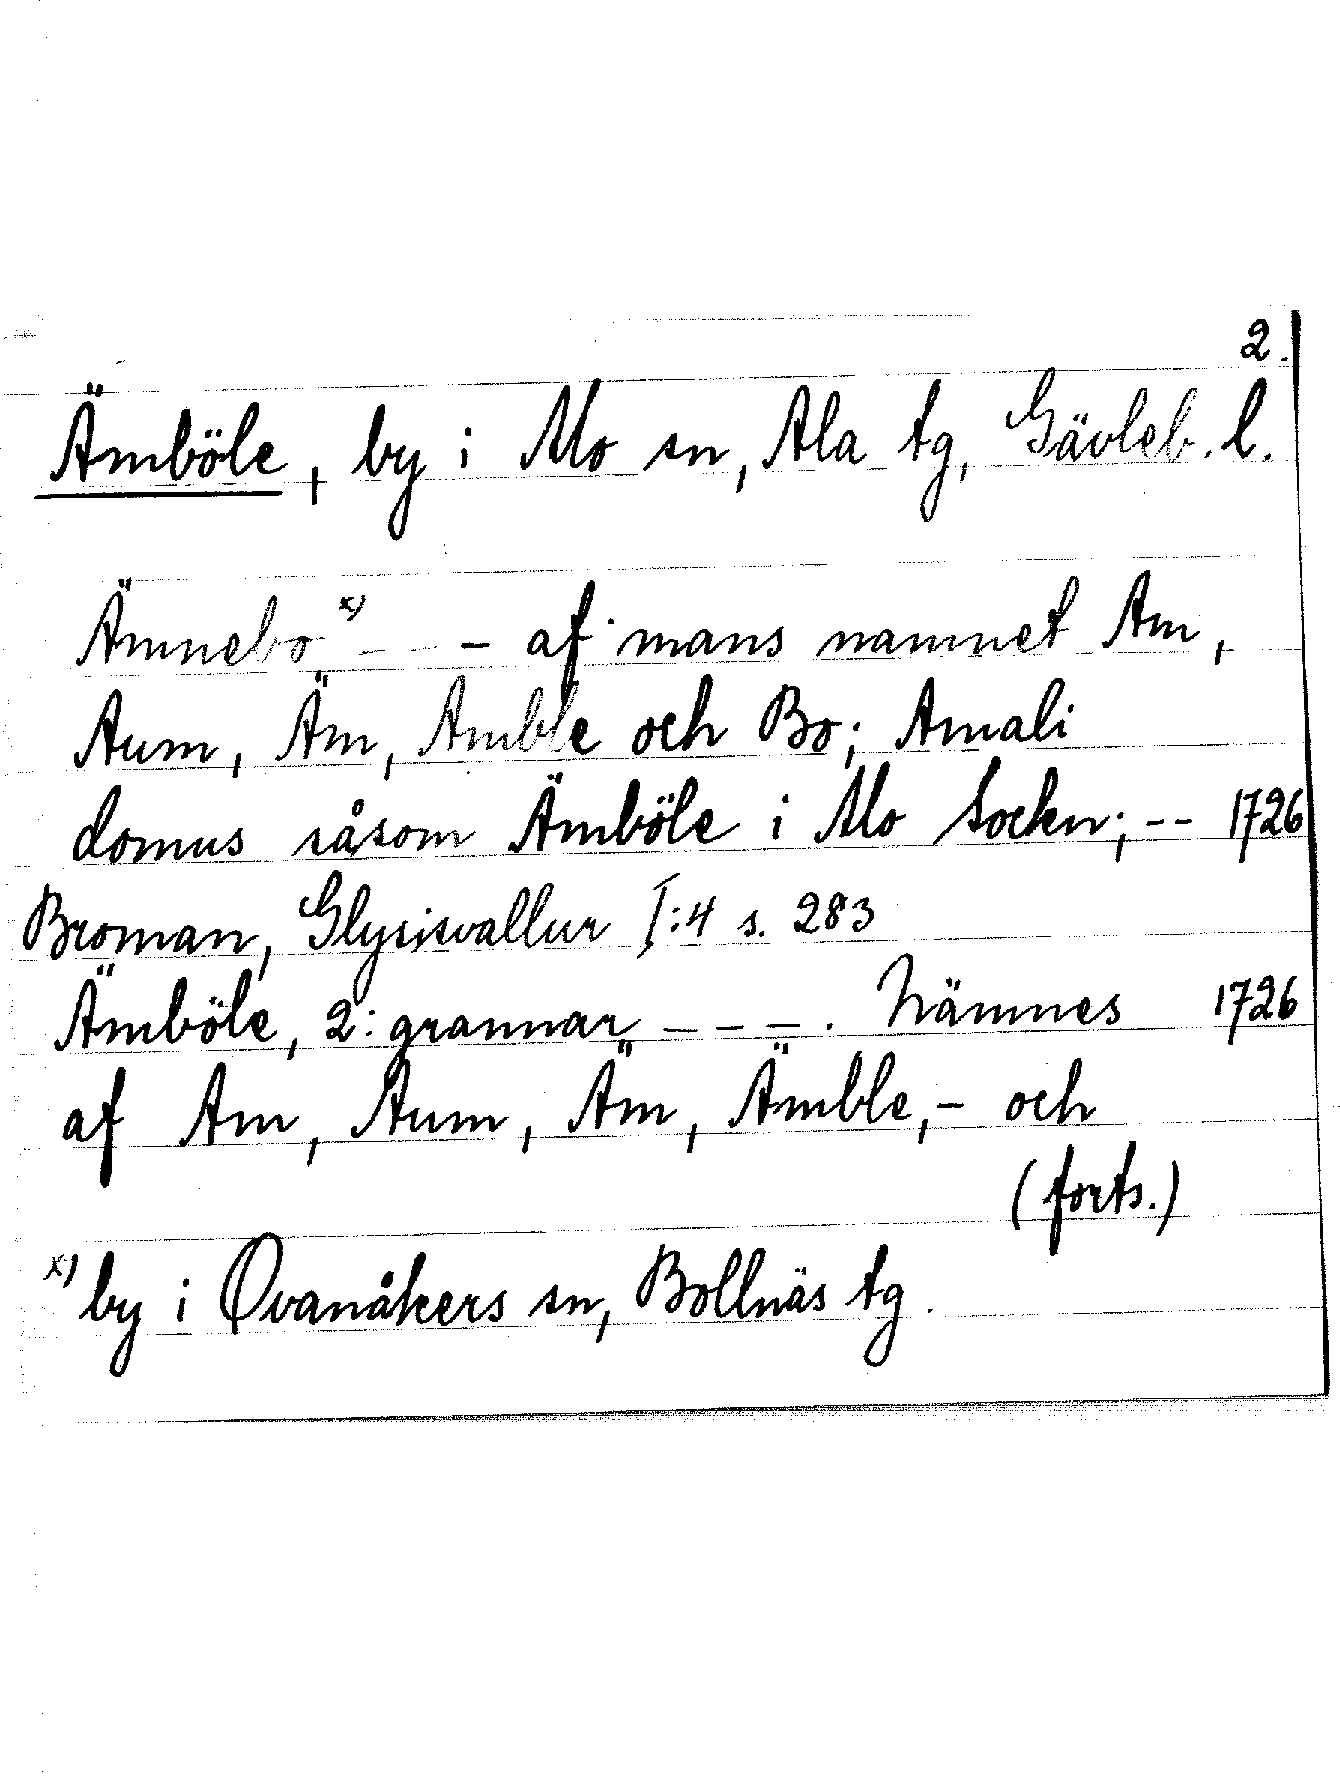 2.
Ämböle, by i Mo sn, Ala tg, Gävleb. l.
Ämnebo x) - - - af mans namnet Am,
Aum, Äm, Amble och Bo; Amali
domus såsom Ämböle i Mo Sockn; -- 1726
Broman, Glysisvallur I:4 s. 283
Ämböle, 2: grannar - - - . Nämnes 1726
af Am, Aum, Äm, Ämble, - och
(forts.)
x) by i Ovanåkers sn, Bollnäs tg.